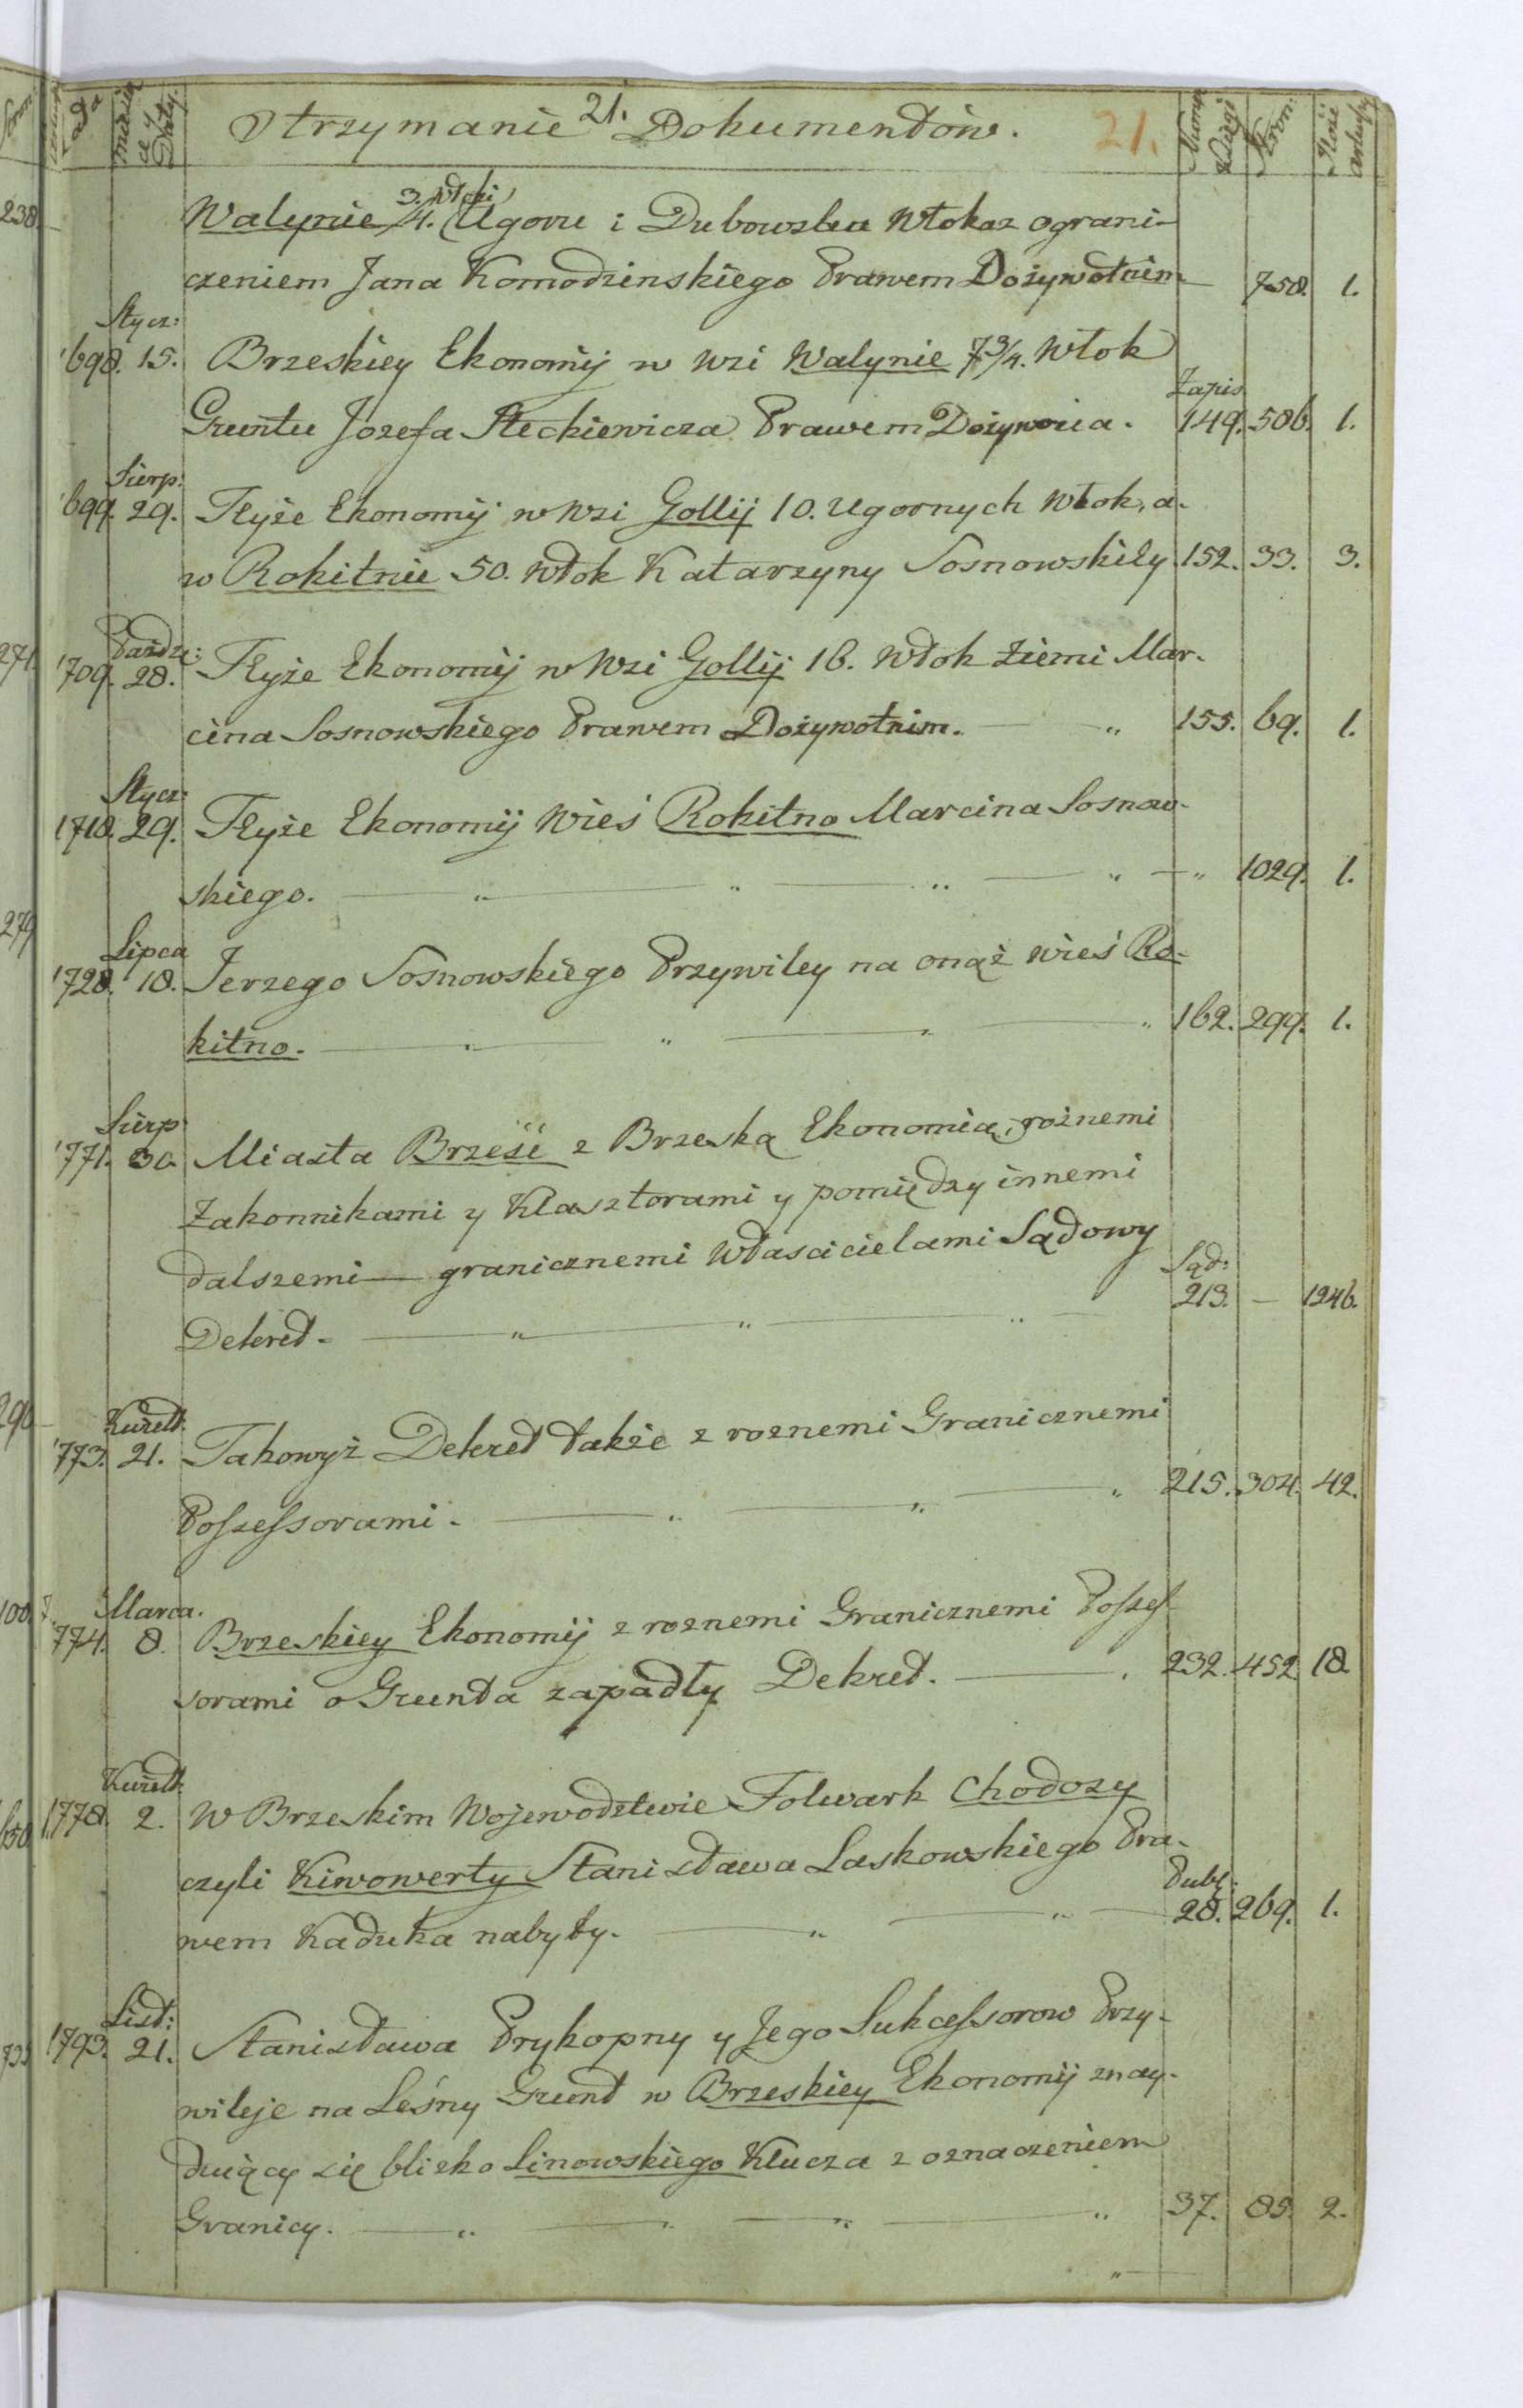 21.
Otrzymanie Dokumentów. 21.
Roku
Miesiąca y Daty.
Numer Księgi
Stron.
Ilość arkuszy
3. włóki
Walynie 4. Ugoru i Dubowska Włoka z ograni-
czeniem Jana Komodzinskiego Prawem Dożywotnim — 758. 1.
Stycz:
1698. 15. Brzeskiey Ekonomij w Wsi Walynie 7 3/4. Włok
Zapis
Gruntu Jozefa Steckiewicza Prawem Dożywocia. 149. 586. 1.
Sierp:
1699. 29. Teyże Ekonomij w Wsi Gollij 10. Ugornych Włok, a
w Rokitnie 50. Włok Katarzyny Sosnowskiey 152. 33. 3.
Paźdz:
1709. 28. Teyże Ekonomij w Wsi Gollij 16. Włok Ziemi Mar-
cina Sosnowskiego Prawem Dożywotnim. — „ 155. 69. 1.
Stycz:
1718. 29. Teyże Ekonomij Wieś Rokitno Marcina Sosnow-
skiego. — „ — „ — „ — „ — „ 1029. 1.
Lipca
1728. 18. Jerzego Sosnowskiego Przywiley na onąż wieś Ro-
kitno. — „ „ — „ — „ 162. 299. 1.
Sierp
1771. 30. Miasta Brześć z Brzeską Ekonomią, rożnemi
Zakonnikami y Klasztorami y pomiędzy innemi
dalszemi — granicznemi Właścicielami Sądowy
Sąd:
Dekret. — „ — „ — „ — 213. — 1246.
Kwiet:
1773. 21. Takowyż Dekret także z roznemi Granicznemi
Possessorami. — „ — „ — „ 215. 304. 42.
Marca.
1774. 8. Brzeskiey Ekonomij z roznemi Granicznemi Posses
sorami o Grunta zapadły Dekret. — „ 232. 452. 18
Kwiet:
1778. 2. W Brzeskim Wojewodztwie Folwark Chodosy
czyli Kiwowerty Stanisława Laskowskiego Pra-
Publ:
wem Kaduka nabyty. — „ — „ — 28. 269. 1.
List:
1793. 21. Stanisława Prykopny y Jego Sukcessorow Przy-
wileje na Leśny Grunt w Brzeskiey Ekonomij znay-
duiący się blisko Linowskiego Klucza z oznaczeniem
Granicy. — „ — „ — „ — „ 37. 85. 2.